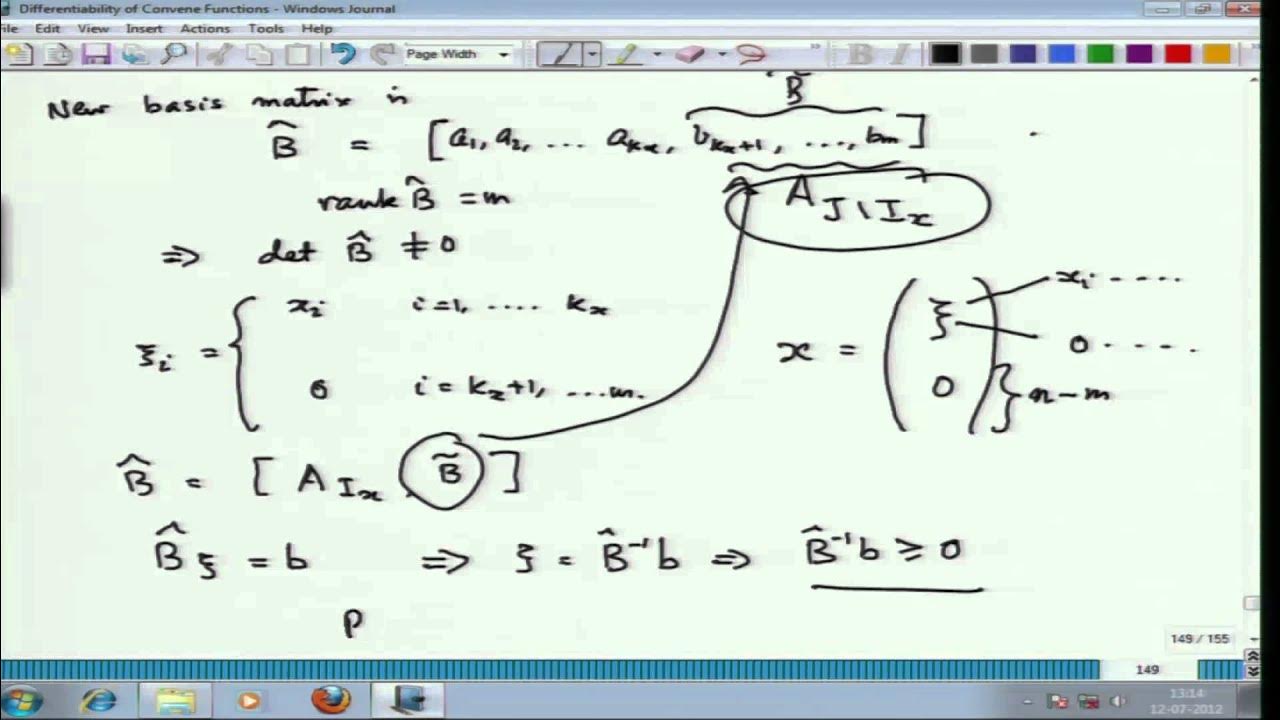 Differentiability of Convene Functions - Windows Journal
File Edit View Insert Actions Tools Help
Page Width
B I
New basis matrix is
B̃
B̂ = [a₁, a₂, ... a_{kₓ}, b_{kₓ+1}, ..., bₘ]
A_{J\Iₓ}
rank B̂ = m
⇒ det B̂ ≠ 0
ξᵢ = { xᵢ i=1, .... kₓ
0 i = kₓ+1, ...m.
x = ( ξ 0 ) } n-m
xᵢ ....
0 ....
B̂ = [ A_{Iₓ}, B̃ ]
B̂ξ = b ⇒ ξ = B̂⁻¹b ⇒ B̂⁻¹b ≥ 0
P
149 / 155
149
13:14
12-07-2012